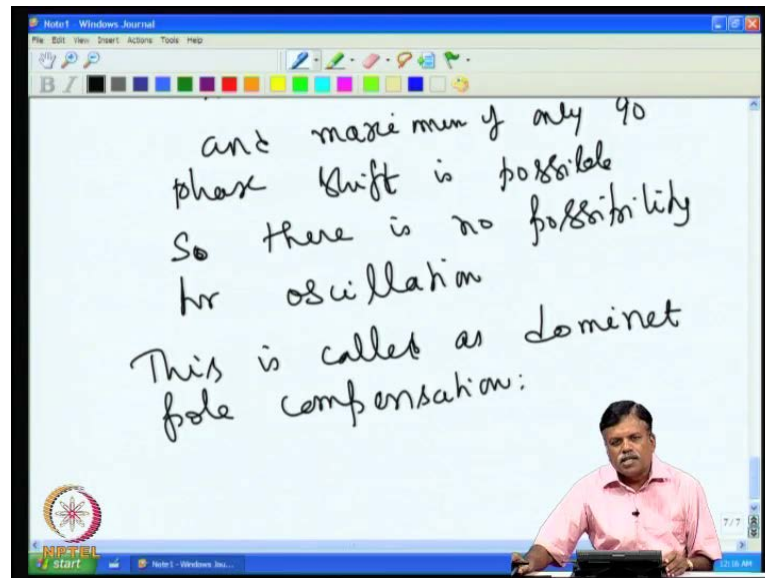 Note1 - Windows Journal
File Edit View Insert Actions Tools Help
B I
and maximum of only 90
phase shift is possible
So there is no possibility
for oscillation
This is called as dominet
pole compensation:
7/7
NPTEL
start Note1 - Windows Jou... 12:16 AM